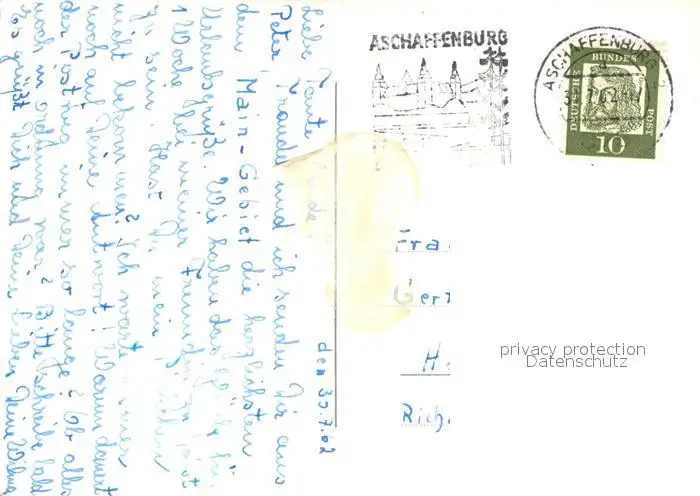 den 30.7.62
Liebe Tante
Peter, Traudl und ich senden Dir aus
dem Main-Gebiet die herzlichsten
Urlaubsgrüße. Wir haben das Glück für
1 Woche bei meiner Freundin zu Gast
zu sein. Hast Du mein
nicht bekommen? Ich warte immer
noch auf Deine Antwort! Warum dauert
der Postweg immer so lange? Ob alles
noch in Ordnung war? Bitte schreibe bald
es grüßt Dich und Deine Lieben Deine Wilma
ASCHAFFENBURG
ASCHAFFENBURG
DEUTSCHE
BUNDES
POST
10
Fra
Gert
H
Rich
privacy protection
Datenschutz